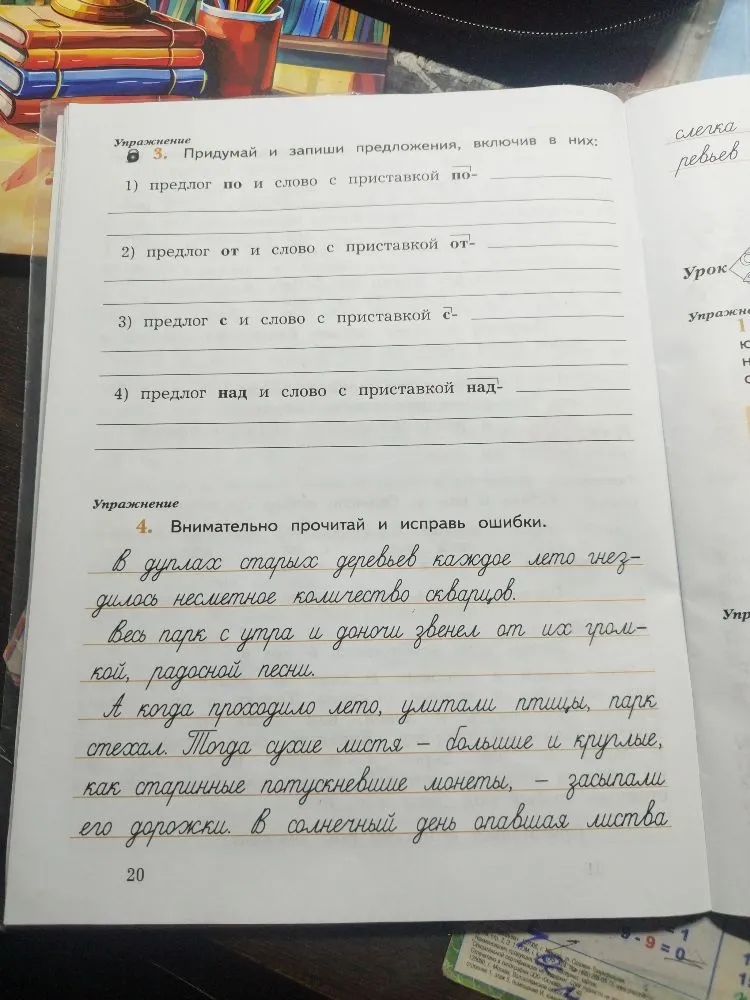 Упражнение
3. Придумай и запиши предложения, включив в них:
1) предлог по и слово с приставкой по-
2) предлог от и слово с приставкой от-
3) предлог с и слово с приставкой с-
4) предлог над и слово с приставкой над-
Упражнение
4. Внимательно прочитай и исправь ошибки.
В дуплах старых деревьев каждое лето гнез-
дилось несметное количество скварцов.
Весь парк с утра и доночи звенел от их гром-
кой, радосной песни.
А когда проходило лето, улитали птицы, парк
стехал. Тогда сухие листя – большие и круглые,
как старинные потускневшие монеты, – засыпали
его дорожки. В солнечный день опавшая листва
20
слегка
ревьев
Урок
1
- 9 = 0